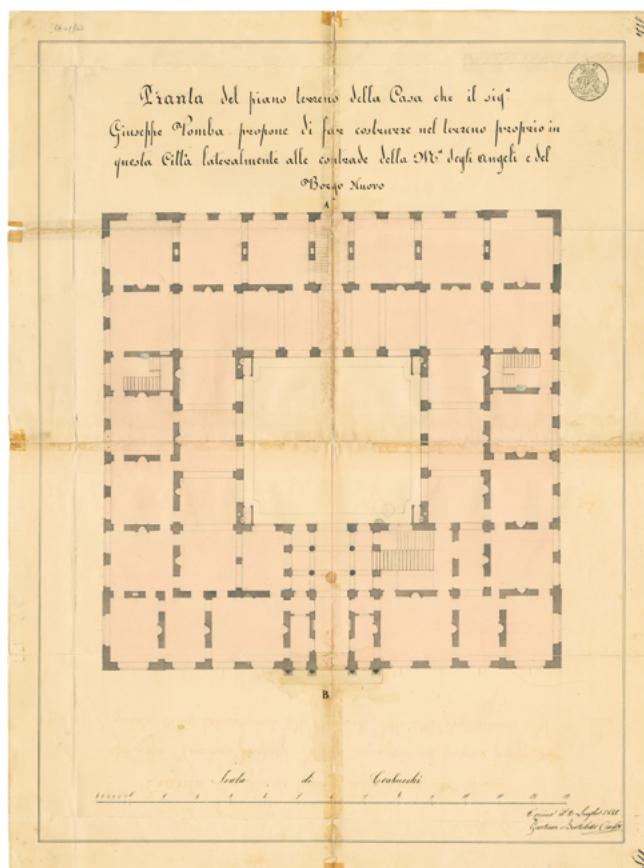 Pianta del piano terreno della Casa che il sig.r
Giuseppe Pomba propone di far costrurre nel terreno proprio in
questa Città lateralmente alle contrade della M.a degli Angeli e del
Borgo Nuovo
A
B
Scala di Trabucchi
Torino il Luglio